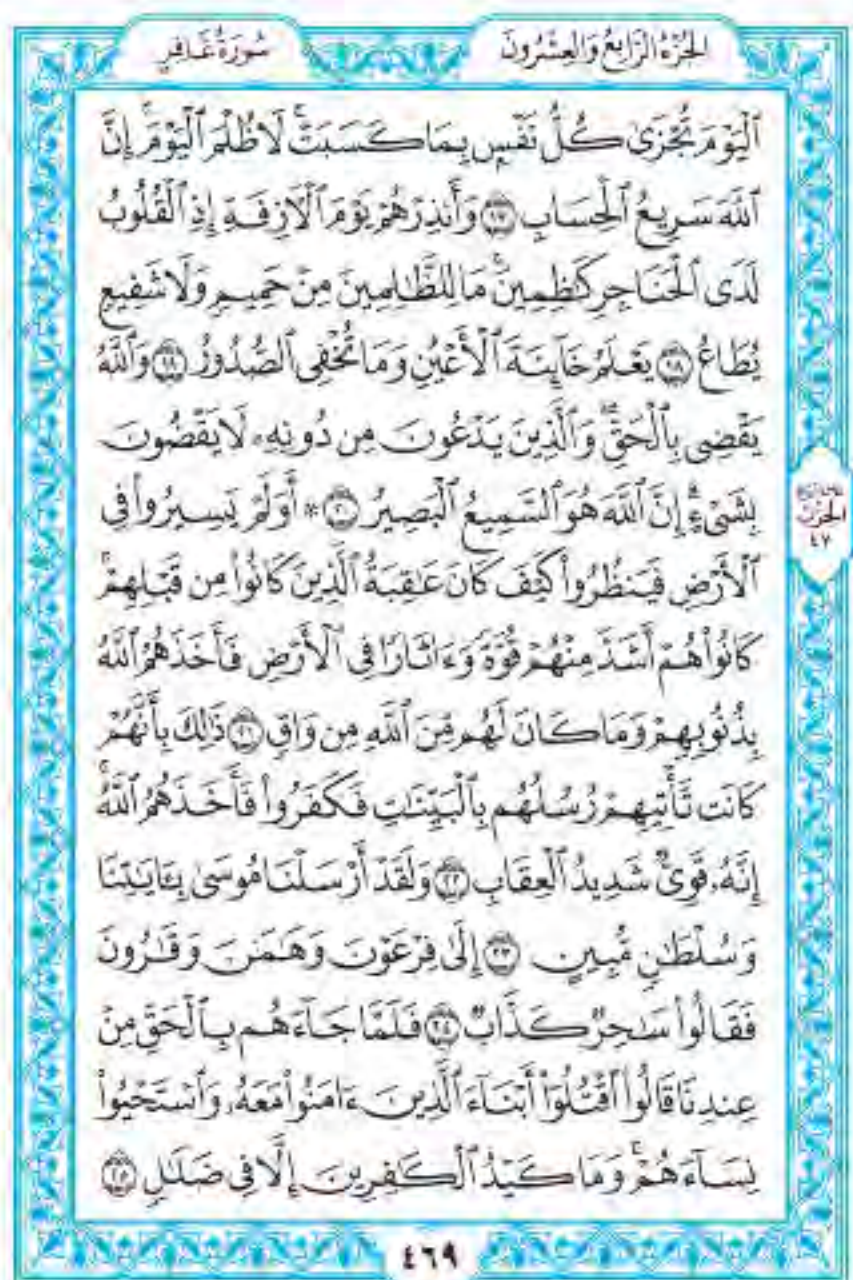 الجُزْءُ الرَّابِعُ وَالعِشْرُونَ
سُورَةُ غَافِرٍ
ٱلۡيَوۡمَ تُجۡزَىٰ كُلُّ نَفۡسِۭ بِمَا كَسَبَتۡۚ لَا ظُلۡمَ ٱلۡيَوۡمَۚ إِنَّ
ٱللَّهَ سَرِيعُ ٱلۡحِسَابِ ١٧ وَأَنذِرۡهُمۡ يَوۡمَ ٱلۡأٓزِفَةِ إِذِ ٱلۡقُلُوبُ
لَدَى ٱلۡحَنَاجِرِ كَٰظِمِينَۚ مَا لِلظَّٰلِمِينَ مِنۡ حَمِيمٖ وَلَا شَفِيعٖ
يُطَاعُ ١٨ يَعۡلَمُ خَآئِنَةَ ٱلۡأَعۡيُنِ وَمَا تُخۡفِي ٱلصُّدُورُ ١٩ وَٱللَّهُ
يَقۡضِي بِٱلۡحَقِّۖ وَٱلَّذِينَ يَدۡعُونَ مِن دُونِهِۦ لَا يَقۡضُونَ
بِشَيۡءٍۗ إِنَّ ٱللَّهَ هُوَ ٱلسَّمِيعُ ٱلۡبَصِيرُ ٢٠ * أَوَلَمۡ يَسِيرُواْ فِي
الحِزْبُ
٤٧
ٱلۡأَرۡضِ فَيَنظُرُواْ كَيۡفَ كَانَ عَٰقِبَةُ ٱلَّذِينَ كَانُواْ مِن قَبۡلِهِمۡۚ
كَانُواْ هُمۡ أَشَدَّ مِنۡهُمۡ قُوَّةٗ وَءَاثَارٗا فِي ٱلۡأَرۡضِ فَأَخَذَهُمُ ٱللَّهُ
بِذُنُوبِهِمۡ وَمَا كَانَ لَهُم مِّنَ ٱللَّهِ مِن وَاقٖ ٢١ ذَٰلِكَ بِأَنَّهُمۡ
كَانَت تَّأۡتِيهِمۡ رُسُلُهُم بِٱلۡبَيِّنَٰتِ فَكَفَرُواْ فَأَخَذَهُمُ ٱللَّهُۚ
إِنَّهُۥ قَوِيّٞ شَدِيدُ ٱلۡعِقَابِ ٢٢ وَلَقَدۡ أَرۡسَلۡنَا مُوسَىٰ بِـَٔايَٰتِنَا
وَسُلۡطَٰنٖ مُّبِينٍ ٢٣ إِلَىٰ فِرۡعَوۡنَ وَهَٰمَٰنَ وَقَٰرُونَ
فَقَالُواْ سَٰحِرٞ كَذَّابٞ ٢٤ فَلَمَّا جَآءَهُم بِٱلۡحَقِّ مِنۡ
عِندِنَا قَالُواْ ٱقۡتُلُوٓاْ أَبۡنَآءَ ٱلَّذِينَ ءَامَنُواْ مَعَهُۥ وَٱسۡتَحۡيُواْ
نِسَآءَهُمۡۚ وَمَا كَيۡدُ ٱلۡكَٰفِرِينَ إِلَّا فِي ضَلَٰلٖ ٢٥
٤٦٩